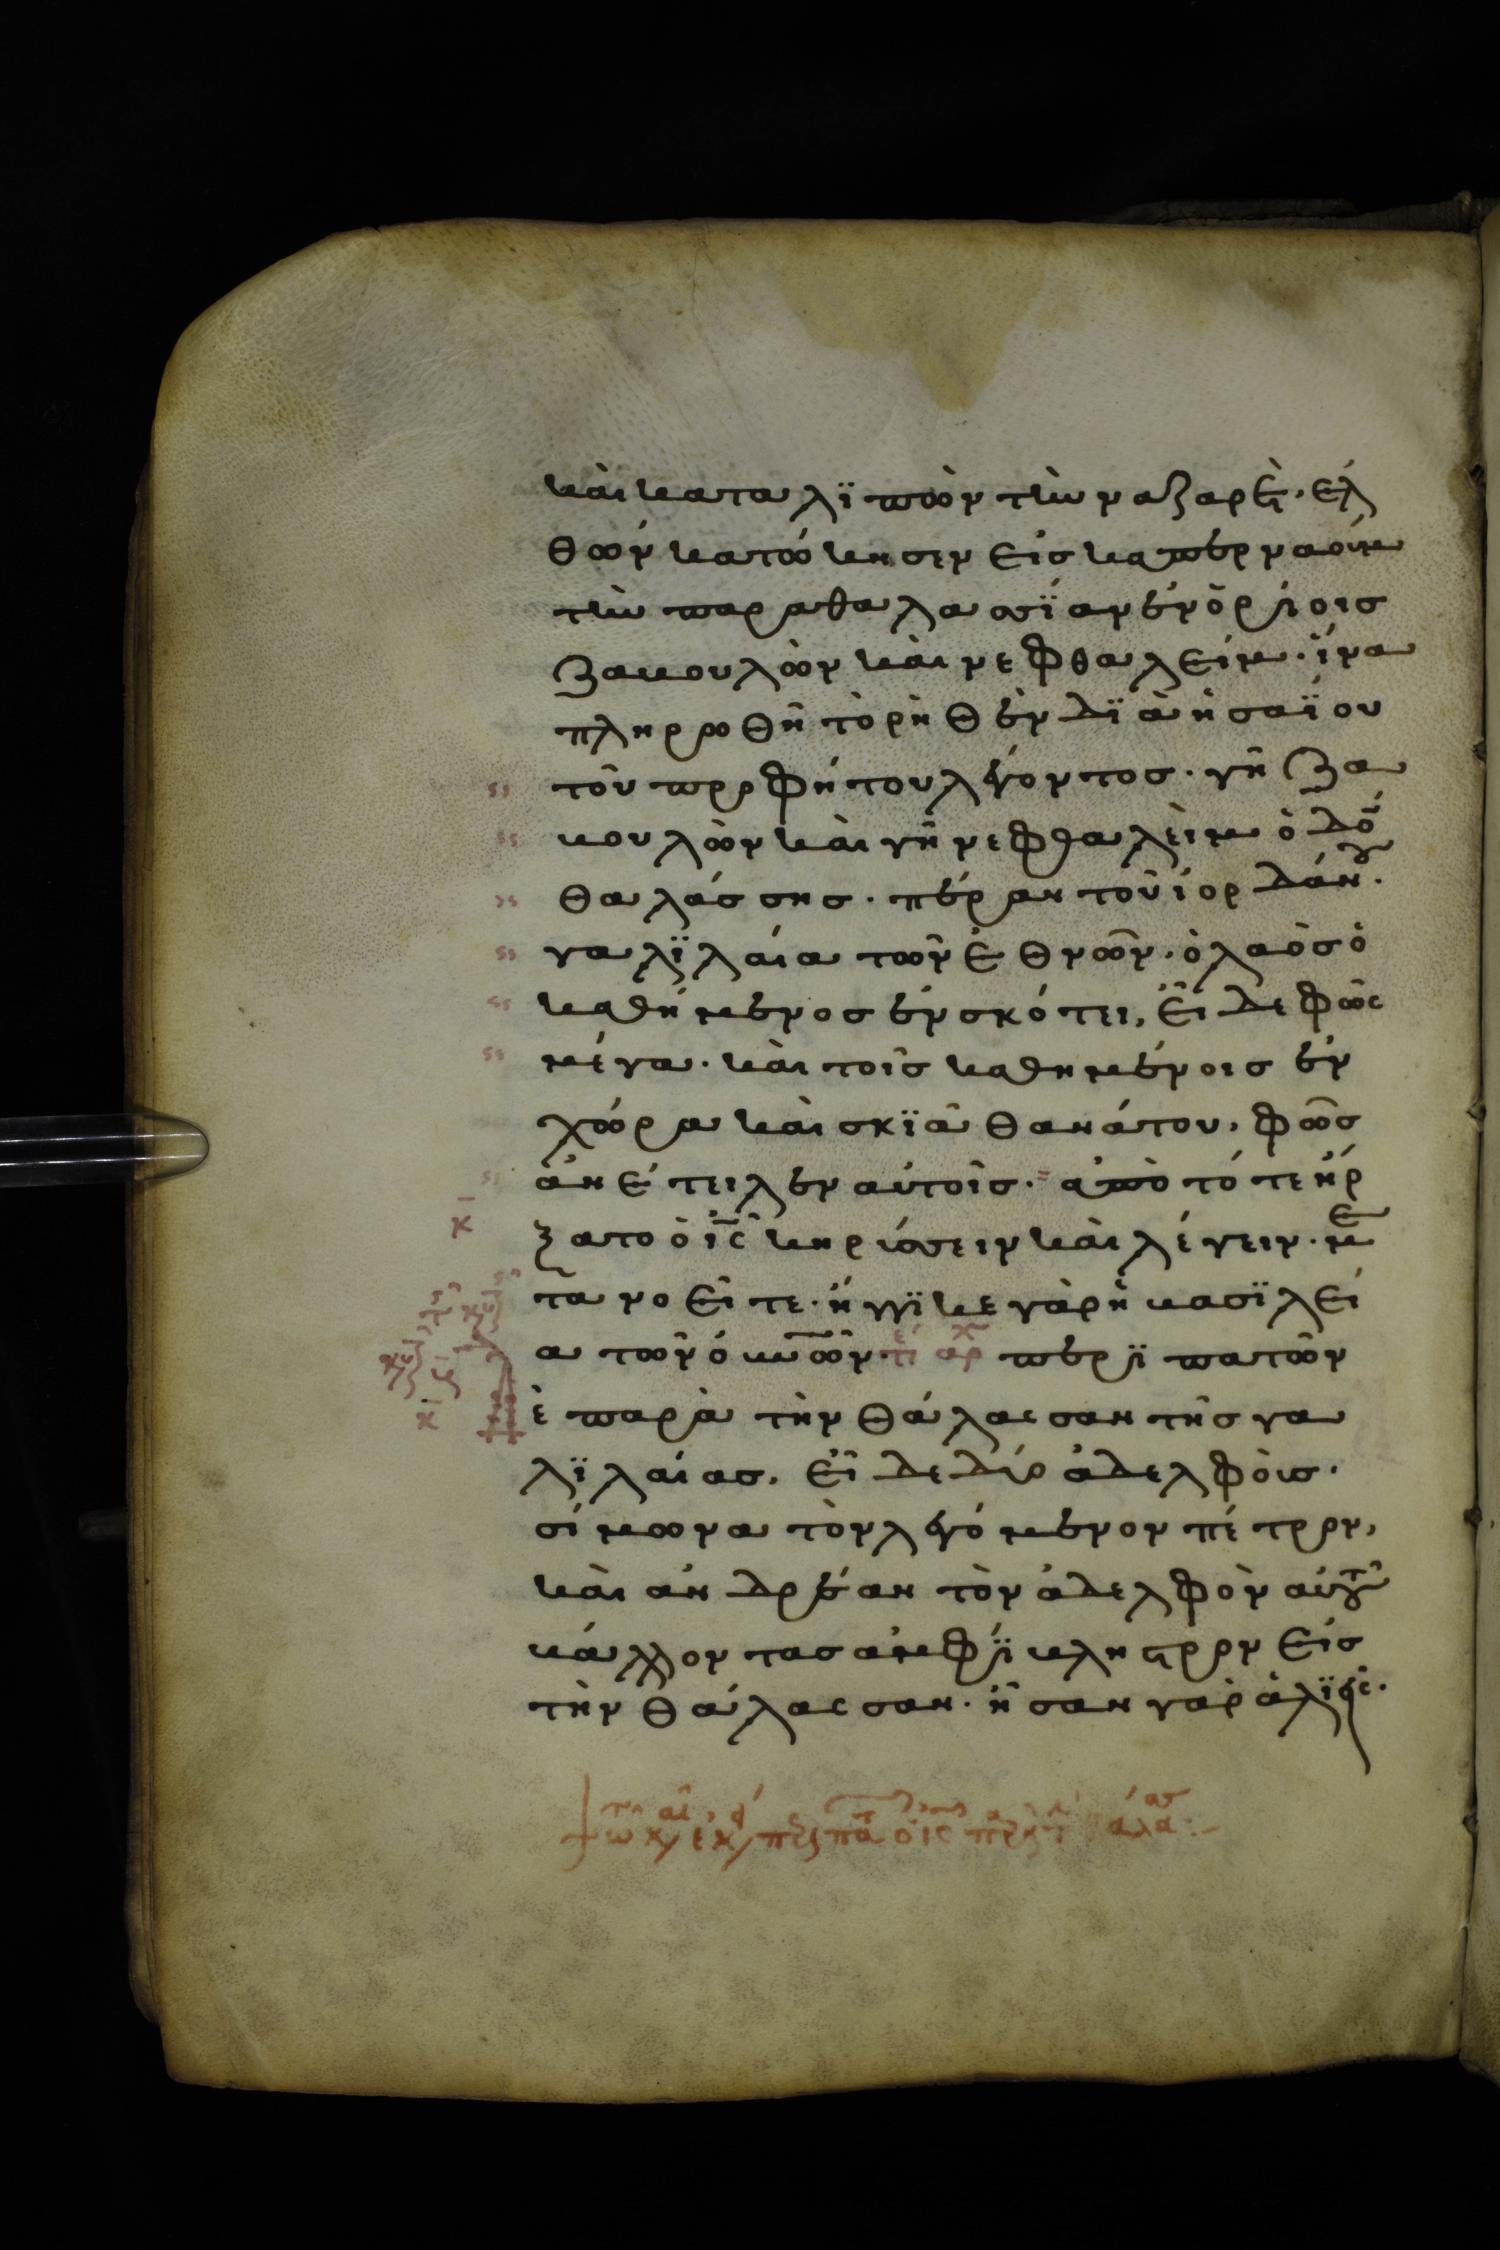 καὶ καταλϊπὼν τὴν ναζαρὲτ· ἐλ
θὼν κατώκησεν εἰς καπερναοὺμ
τὴν παραθαλασσΐαν ἐν ὁρίοις
ζαβουλὼν καὶ νεφθαλείμ· ἵνα
πληρωθῆ τὸ ῥηθὲν δϊὰ ἡσαΐου
τοῦ προφήτου λέγοντος· γῆ ζα
βουλὼν καὶ γῆ νεφθαλεὶμ ὁδὸν
θαλάσσης· πέραν τοῦ ἰορδάνου·
γαλϊλαία τῶν ἐθνῶν· ὁ λαὸς ὁ
καθήμενος ἐν σκότει, εἶδε φῶς
μέγα· καὶ τοῖς καθημένοις ἐν
χώρα καὶ σκϊᾶ θανάτου, φῶς
ἀνέτειλεν αὐτοῖς· ἀπὸ τότε ἤρ
κ̄
ξατο ὁ ι̅ς̅ κηρύσσειν καὶ λέγειν· με
τανοεῖτε· ἤγγϊκε γὰρ ἡ βασϊλεί
α τῶν οὐ̅νῶν· τε αρχ περιπατῶν
κ̄
ὲ παρὰ τὴν θάλασσαν τῆς γα
λϊλαίας, εἶδε δύο ἀδελφοὺς·
σίμωνα τὸν λεγόμενον πέτρον,
καὶ ἀνδρέαν τὸν ἀδελφὸν αὐτοῦ
βάλλοντας ἀμφίβληστρον εἰς
τὴν θάλασσαν· ἦσαν γὰρ ἁλϊεῖς·